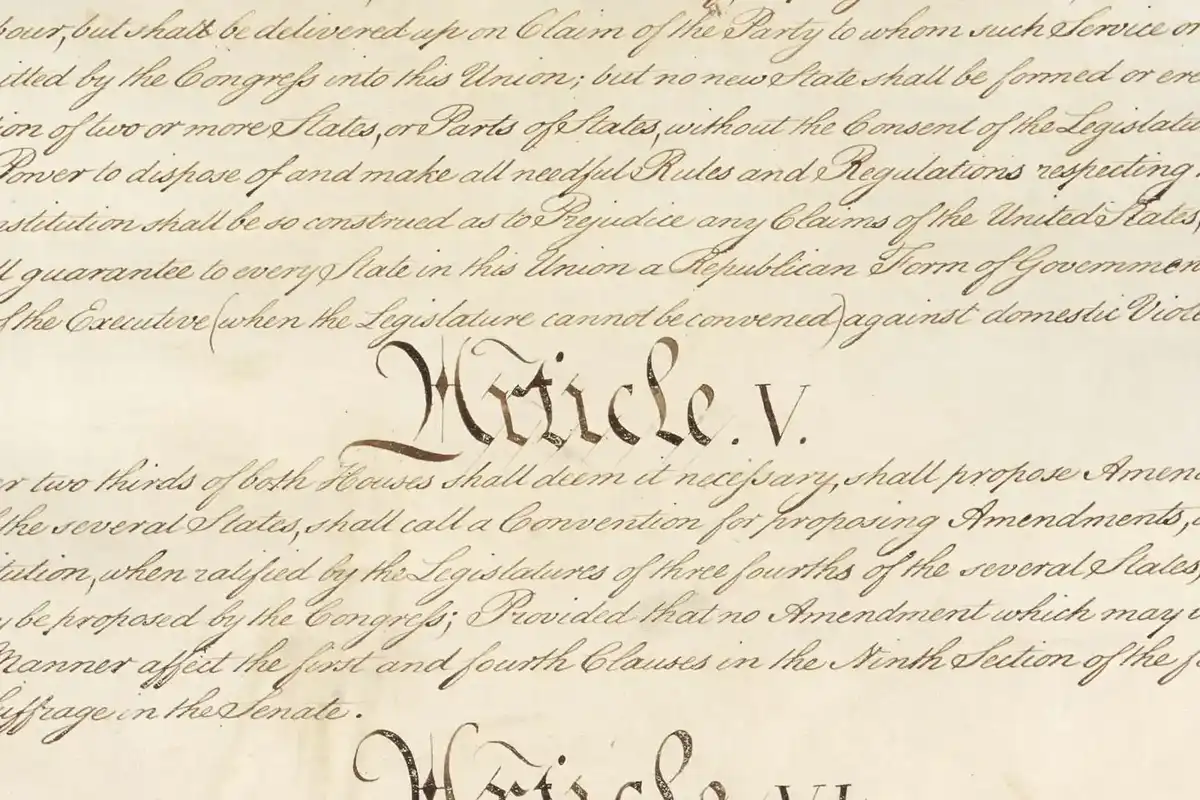 bour, but shall be delivered up on Claim of the Party to whom such Service or
itted by the Congress into this Union; but no new State shall be formed or ere
tion of two or more States, or Parts of States, without the Consent of the Legislatu
Power to dispose of and make all needful Rules and Regulations respecting
nstitution shall be so construed as to Prejudice any Claims of the United States,
ll guarantee to every State in this Union a Republican Form of Governmen
f the Executive (when the Legislature cannot be convened) against domestic Viole
Article. V.
er two thirds of both Houses shall deem it necessary, shall propose Amend
f the several States, shall call a Convention for proposing Amendments,
tution, when ratified by the Legislatures of three fourths of the several States
y be proposed by the Congress; Provided that no Amendment which may
Manner affect the first and fourth Clauses in the Ninth Section of the f
uffrage in the Senate.
Article. VI.